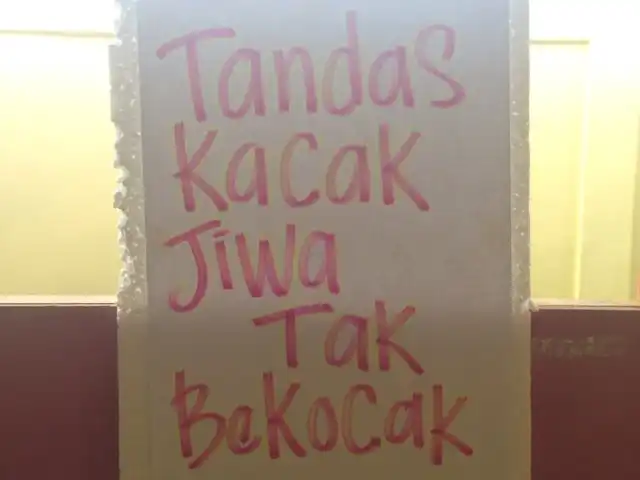 Tandas
Kacak
Jiwa
Tak
Bekocak